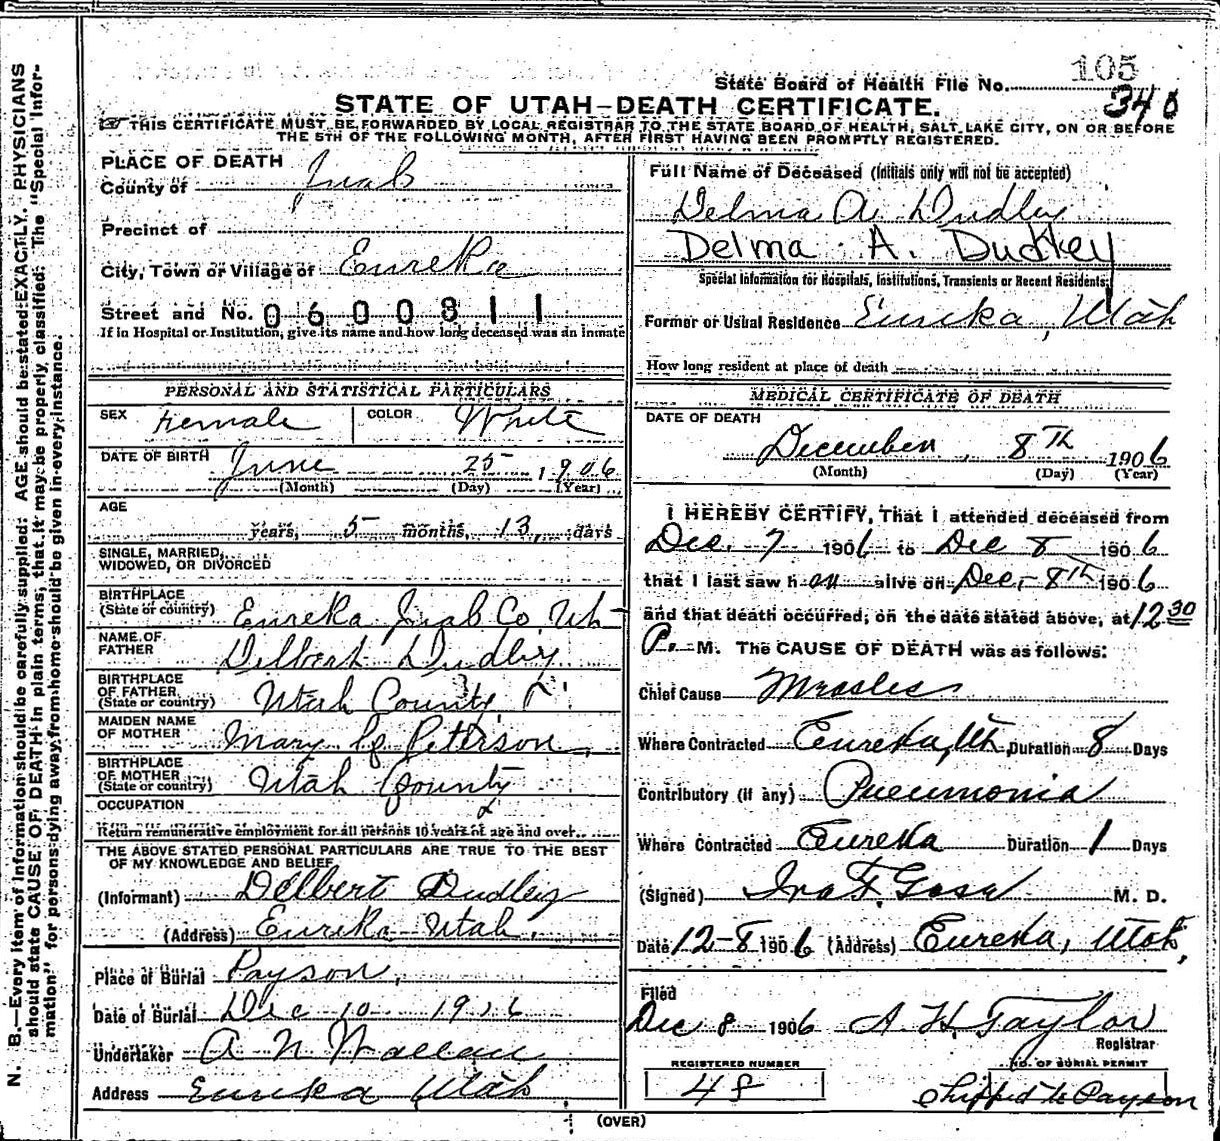 State Board of Health File No. 105
340
STATE OF UTAH-DEATH CERTIFICATE.
THIS CERTIFICATE MUST BE FORWARDED BY LOCAL REGISTRAR TO THE STATE BOARD OF HEALTH, SALT LAKE CITY, ON OR BEFORE
THE 5TH OF THE FOLLOWING MONTH, AFTER FIRST HAVING BEEN PROMPTLY REGISTERED.
PLACE OF DEATH
County of Juab
Precinct of
City, Town or Village of Eureka
Street and No. 0600811
If in Hospital or Institution, give its name and how long deceased was an inmate
PERSONAL AND STATISTICAL PARTICULARS
SEX Female COLOR White
DATE OF BIRTH June 25, 1906
(Month) (Day) (Year)
AGE
years, 5 months, 13, days
SINGLE, MARRIED,
WIDOWED, OR DIVORCED
BIRTHPLACE
(State or country) Eureka Juab Co. Ut-
NAME OF
FATHER Delbert Dudley
BIRTHPLACE
OF FATHER
(State or country) Utah County
MAIDEN NAME
OF MOTHER Mary Peterson
BIRTHPLACE
OF MOTHER
(State or country) Utah County
OCCUPATION
Return remunerative employment for all persons 10 years of age and over.
THE ABOVE STATED PERSONAL PARTICULARS ARE TRUE TO THE BEST
OF MY KNOWLEDGE AND BELIEF.
(Informant) Delbert Dudley
(Address) Eureka Utah.
Place of Burial Payson,
Date of Burial Dec 10 1906
Undertaker A N Wallace
Address Eureka Utah
Full Name of Deceased (Initials only will not be accepted)
Delma A. Dudley
Delma A. Dudley
Special Information for Hospitals, Institutions, Transients or Recent Residents,
Former or Usual Residence Eureka, Utah
How long resident at place of death
MEDICAL CERTIFICATE OF DEATH
DATE OF DEATH
December, 8TH 1906
(Month) (Day) (Year)
I HEREBY CERTIFY, That I attended deceased from
Dec. 7 1906 to Dec 8 1906
that I last saw h er alive on Dec, 8th 1906
and that death occurred, on the date stated above, at 12 30
P. M. The CAUSE OF DEATH was as follows:
Chief Cause Measles
Where Contracted Eureka, Ut. Duration 8 Days
Contributory (if any) Pneumonia
Where Contracted Eureka Duration 1 Days
(Signed) Ira F. M. D.
Date 12-8 1906 (Address) Eureka, Utah,
Filed
Dec 8 1906 A. H. Taylor
Registrar
REGISTERED NUMBER
48
NO. OF BURIAL PERMIT
Shipped to Payson
(OVER)
N. B.—Every item of information should be carefully supplied. AGE should be stated EXACTLY. PHYSICIANS
should state CAUSE OF DEATH in plain terms, that it may be properly classified. The "Special Infor-
mation" for persons dying away from home should be given in every instance.